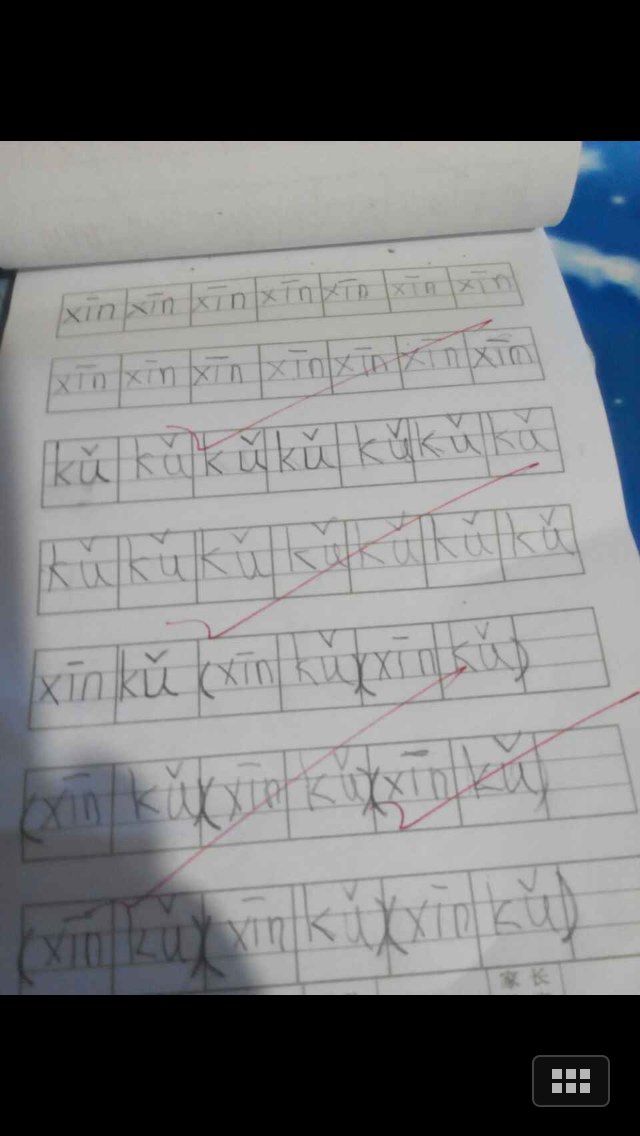 xīn xīn xīn xīn xīn xīn xīn
xīn xīn xīn xīn xīn xīn xīn
kǔ kǔ kǔ kǔ kǔ kǔ kǔ
kǔ kǔ kǔ kǔ kǔ kǔ kǔ
xīn kǔ (xīn kǔ)(xīn kǔ)
(xīn kǔ)(xīn kǔ)(xīn kǔ)
(xīn kǔ)(xīn kǔ)(xīn kǔ)
家长